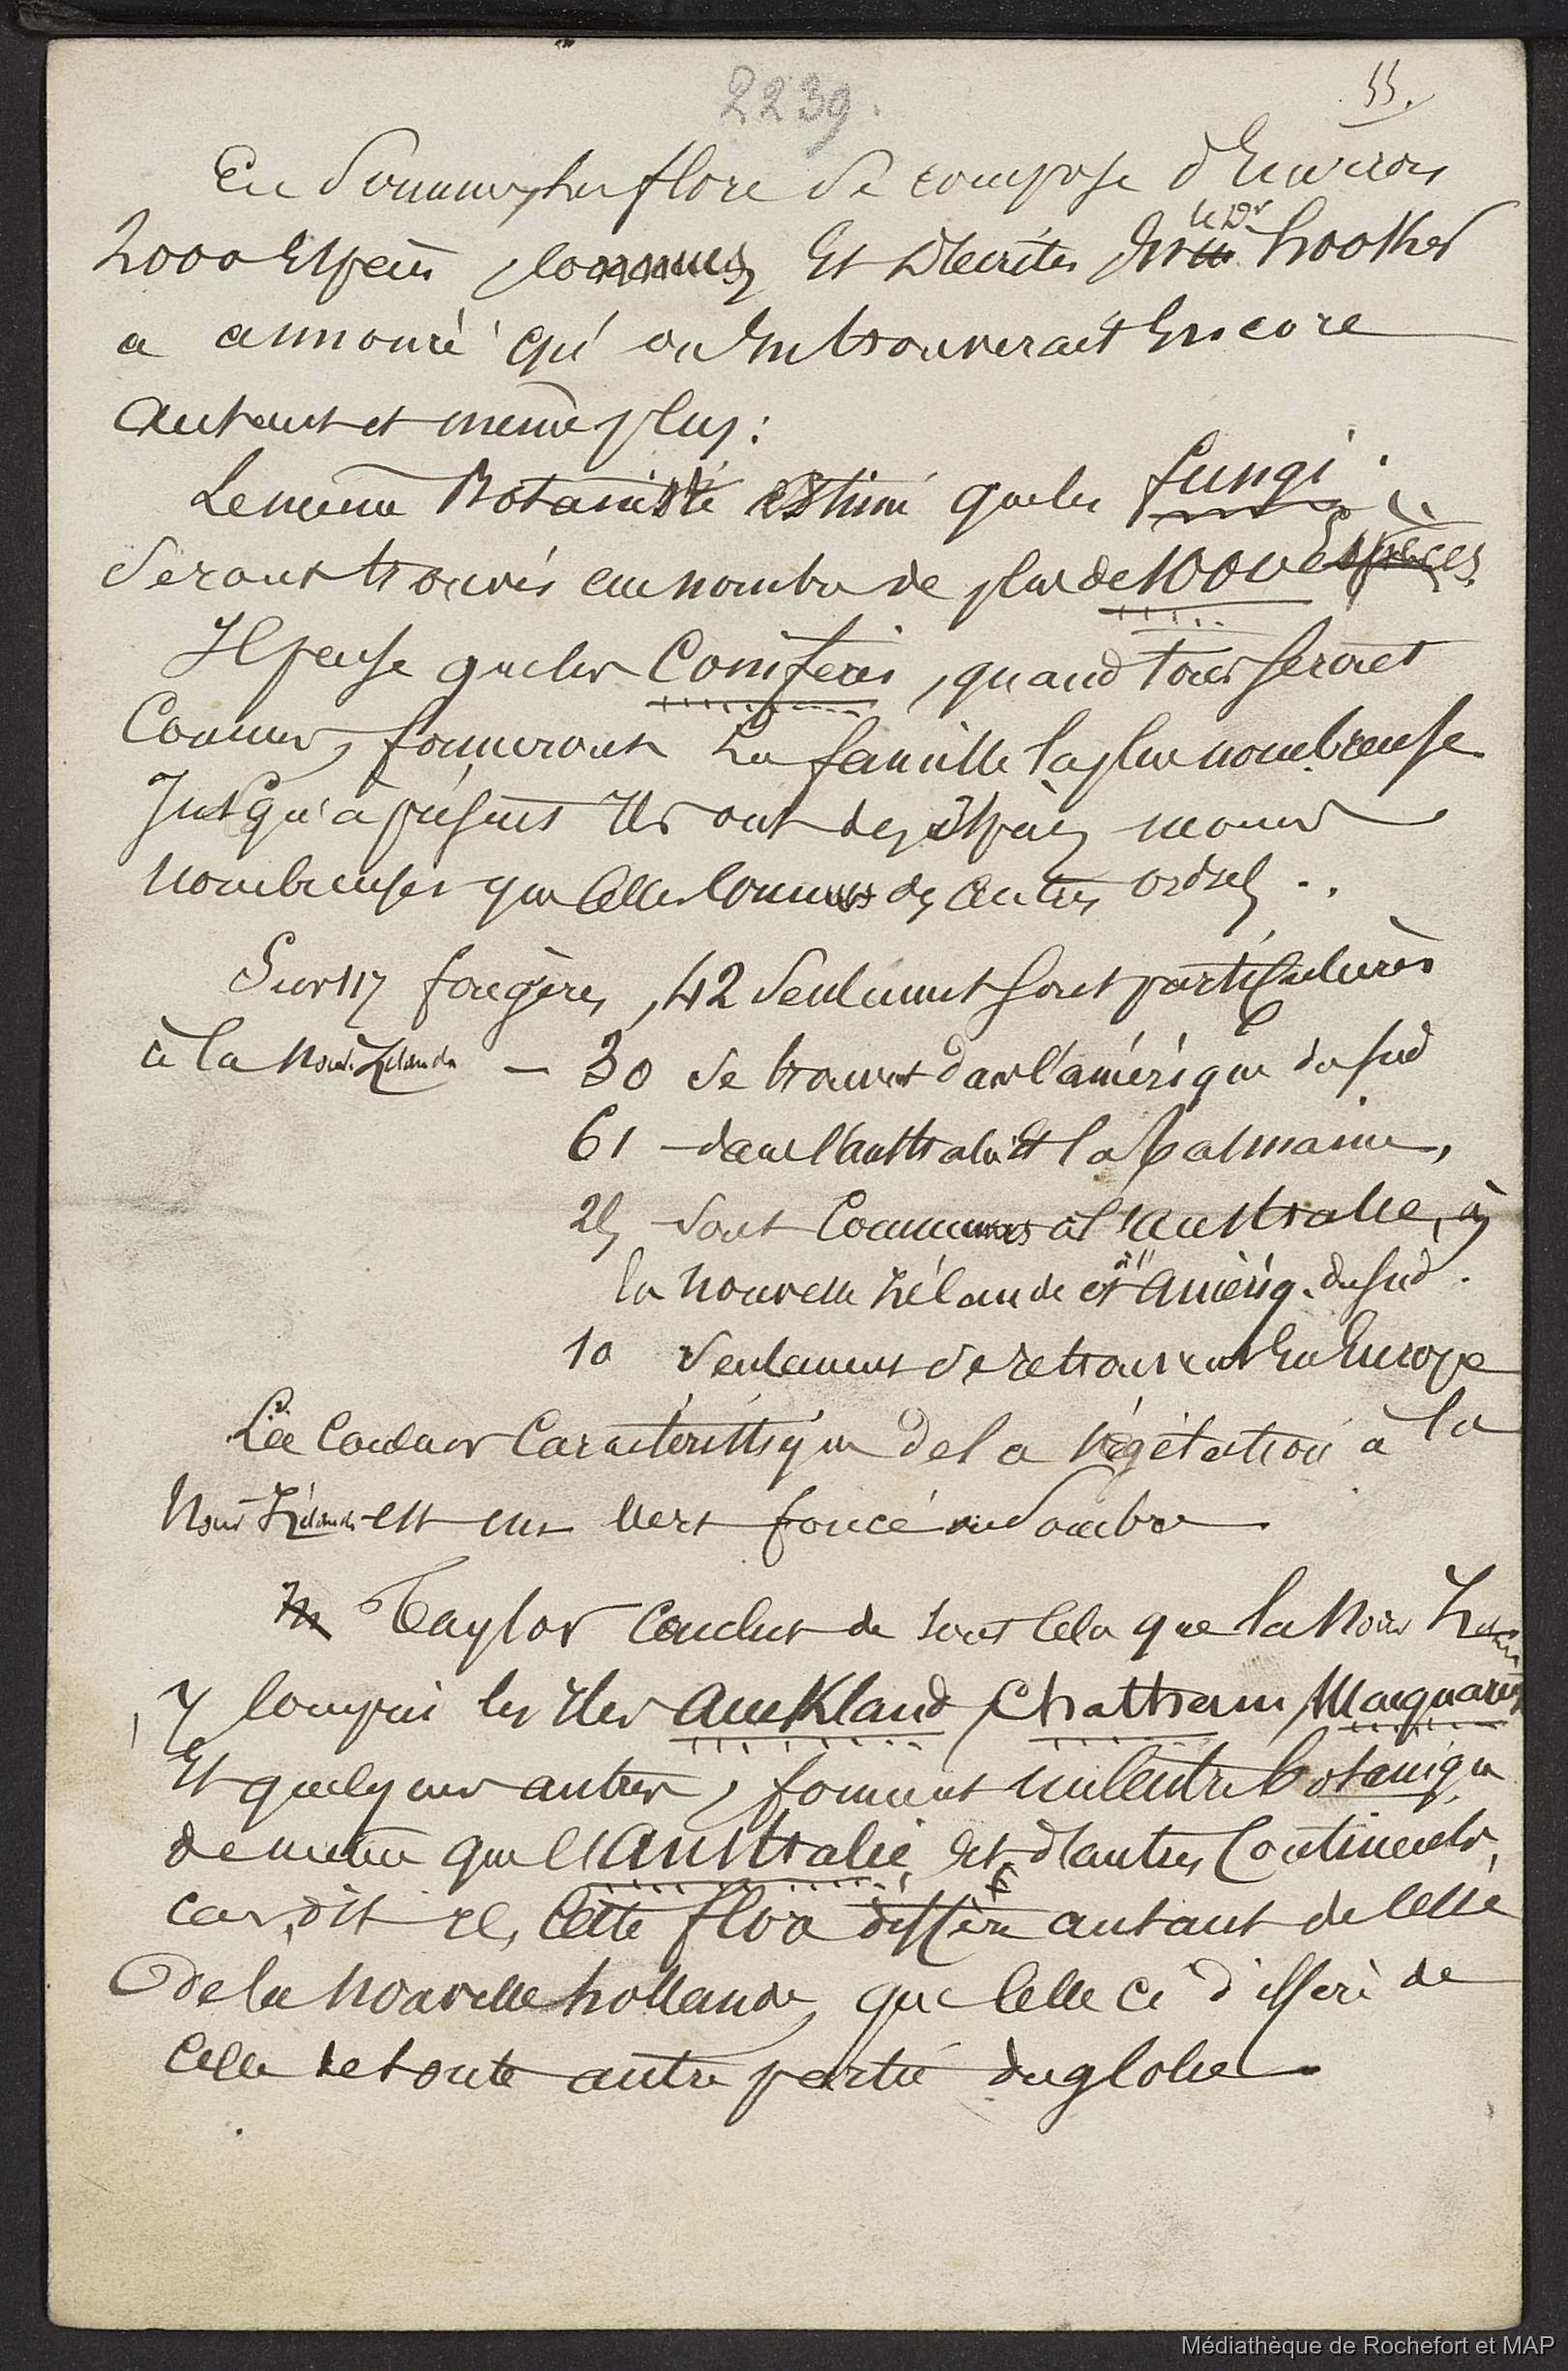 2239.
55.
En Somme, la flore se compose d'Environ
2000 Espèces connues Et Décrites le Dr hooker
a annoncé qu'on En trouverait Encore
autant et même plus :
Le même Botaniste estime que les fungi
seront trouvés au nombre de plus de 1000 Espèces.
Il pense que les Conifères, quand tous seront
Connus, formeront La famille la plus nombreuse
Jusqu'à présent Ils ont des espèces moins
Nombreuses que Celles connues des autres ordres ..
Sur 117 fougères, 42 Seulement sont particulières
à la Nouv. Zélande — 30 se trouvent dans l'amérique du sud
61 — dans l'australie Et la tasmanie,
25 sont Communes à l'australie, à
la Nouvelle Zélande et à l'Amériq. du sud.
10 Seulement se retrouvent En Europe
La Couleur Caractéristique de la végétation à la
Nouv Zélande est un vert foncé ou Sombre
M Taylor Conclut de tout Cela que la Nouv Zélande
y Compris les Iles Auckland, Chatham, Macquaries
Et quelques autres, forment un Centre botanique
de même que l'Australie, Et d'autres Continents,
car, dit il, Cette flora diffère autant de Celle
de la Nouvelle hollande, que Celle Ci diffère de
Celle de toute autre partie du globe.
Médiathèque de Rochefort et MAP